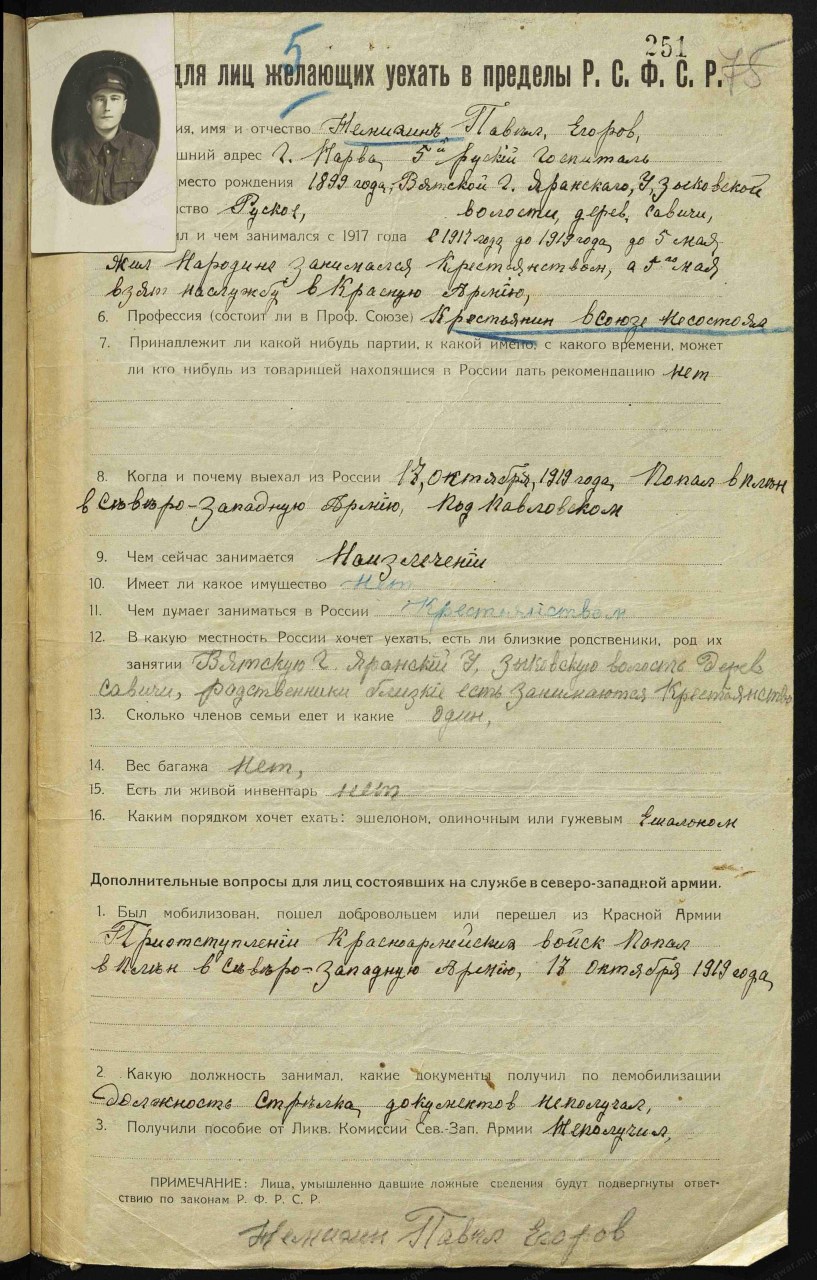 251
5
75
для лиц желающих уехать в пределы Р. С. Ф. С. Р.
имя и отчество Павел, Егоров,
адрес г. Нарва, 5й руский госпиталь
место рождения 1899 года, Вятской г. Яранскаго, У, зыковской
Руское, волости, дерев. савичи,
и чем занимался с 1917 года с 1917 года до 1919 года, до 5 мая,
жил Народине занимался Крестянством, а 5го мая
взят наслужбу в Красную Армію,
6. Профессия (состоит ли в Проф. Союзе) Крестьянин всоюзе несостоял
7. Принадлежит ли какой нибудь партии, к какой имено, с какого времени, может
ли кто нибудь из товарищей находящися в России дать рекомендацию нет
8. Когда и почему выехал из России 17, октября, 1919 года, Попал вплѣн
в Сѣвѣро-Западную Армію, Под Павловском
9. Чем сейчас занимается Наизлечении
10. Имеет ли какое имущество Нет
11. Чем думает заниматься в России Крестьянством
12. В какую местность России хочет уехать, есть ли близкие родственики, род их
занятии Вятскую г. Яранский У. зыковскую волость Дерев
савичи, родственники близкіе есть занимаются Крестьянство
13. Сколько членов семьи едет и какие один,
14. Вес багажа Нет,
15. Есть ли живой инвентарь нет
16. Каким порядком хочет ехать: эшелоном, одиночным или гужевым Ешалоном
Дополнительные вопросы для лиц состоявших на службе в северо-западной армии.
1. Был мобилизован, пошел добровольцем или перешел из Красной Армии
Приотступленіи Красноармейских войск Попал
вплѣн в Сѣвѣро-Западную Армію, 17 октября 1919 года,
2. Какую должность занимал, какие документы получил по демобилизации
Должность стрѣлка, документов неполучал,
3. Получили пособие от Ликв. Комиссии Сев.-Зап. Армии Неполучил,
ПРИМЕЧАНИЕ: Лица, умышленно давшие ложные сведения будут подвергнуты ответ-
ствию по законам Р. Ф. Р. С. Р.
Павел Егоров